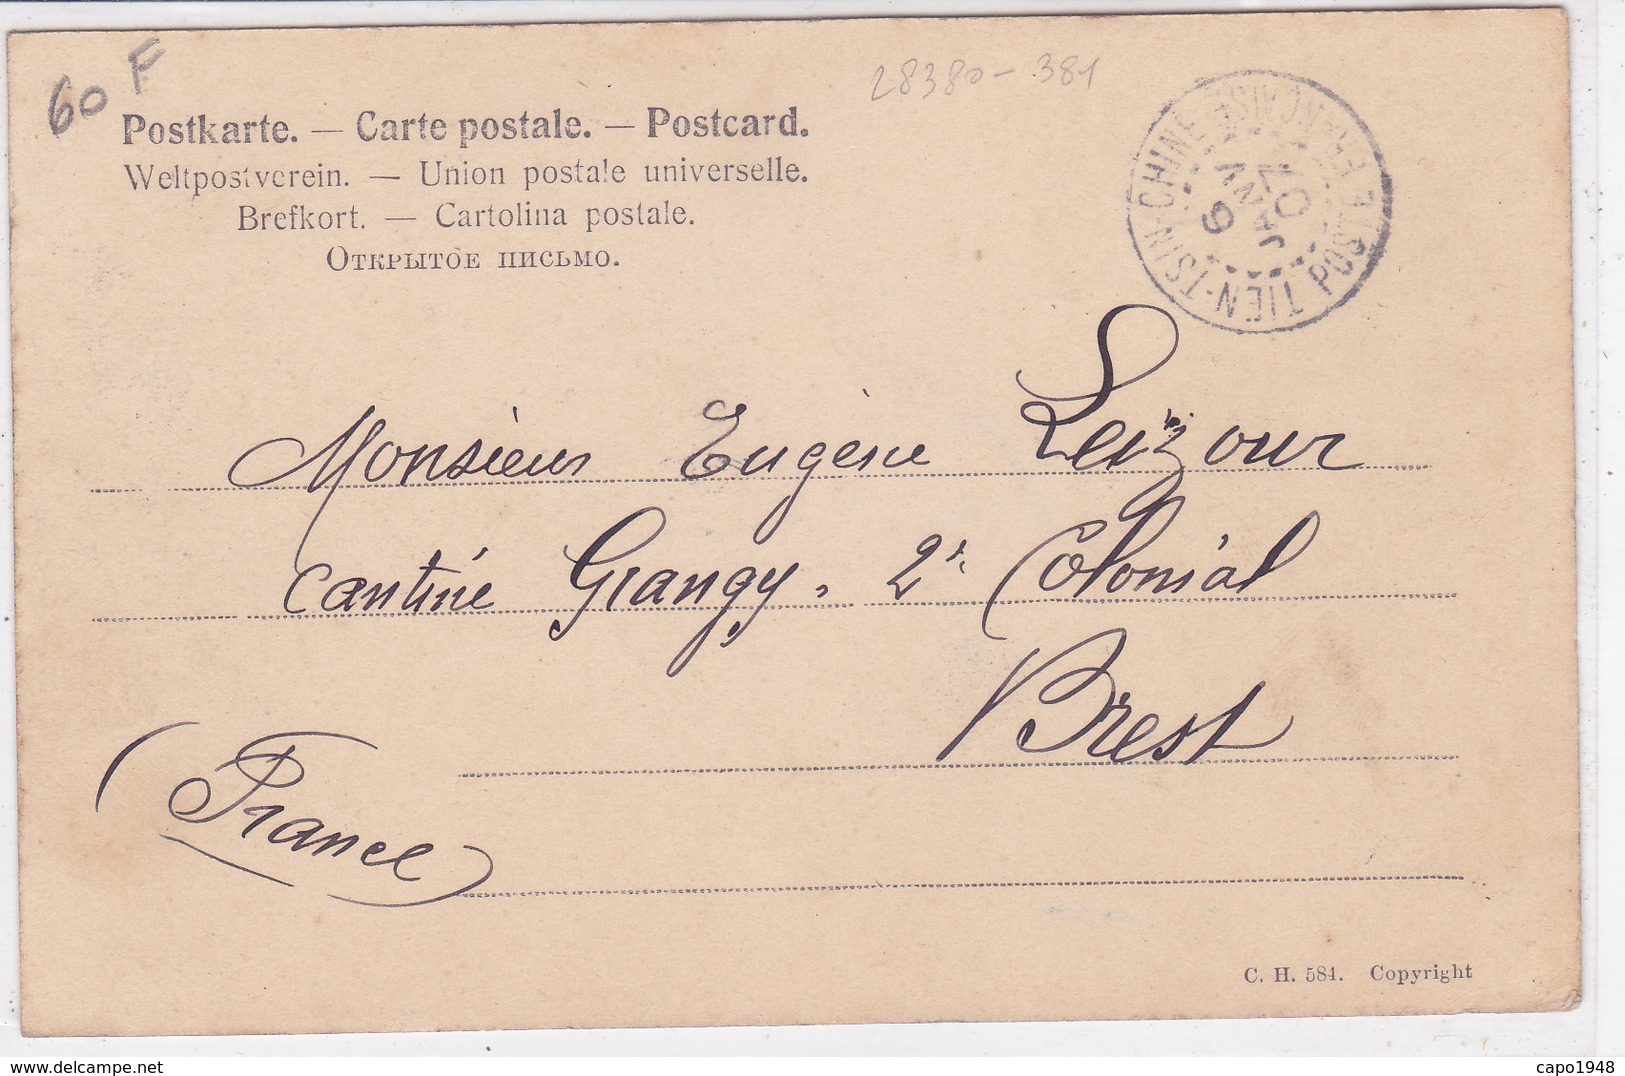 60 F
28380-381
Postkarte. — Carte postale. — Postcard.
Weltpostverein. — Union postale universelle.
Brefkort. — Cartolina postale.
Открытое письмо.
TIEN-TSIN-CHINE POSTE FRANÇAISE
6 JANV 07
Monsieur Eugène Leizour
Cantine Grangy, 2e Colonial
Brest
(France)
C. H. 584. Copyright
capo1948